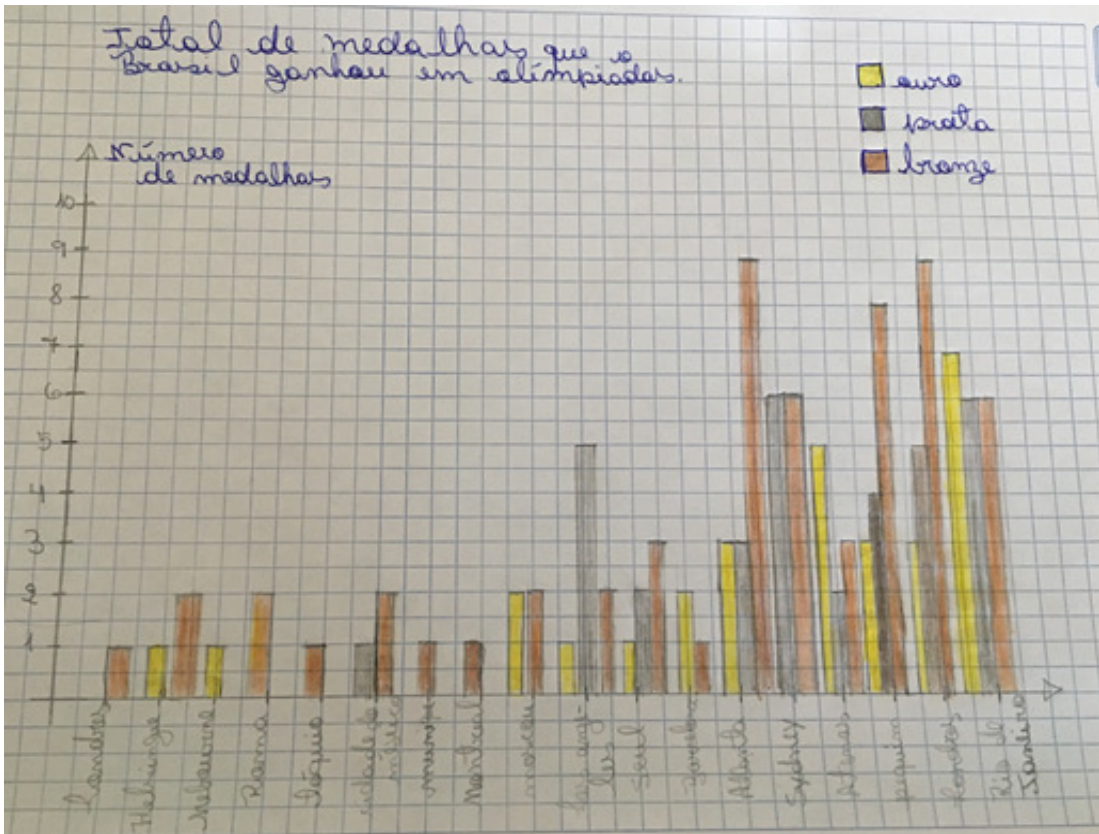 Total de medalhas que o
Brasil ganhou em olímpiadas.
ouro
prata
bronze
Número
de medalhas
10
9
8
7
6
5
4
3
2
1
Londres
Helsinque
Melbourne
Roma
Tóquio
cidade do
méxico
munique
Montreal
moscou
Los ange-
les
Seul
Barcelona
Atlanta
Sydney
Atenas
pequim
Londres
Rio de
Janeiro